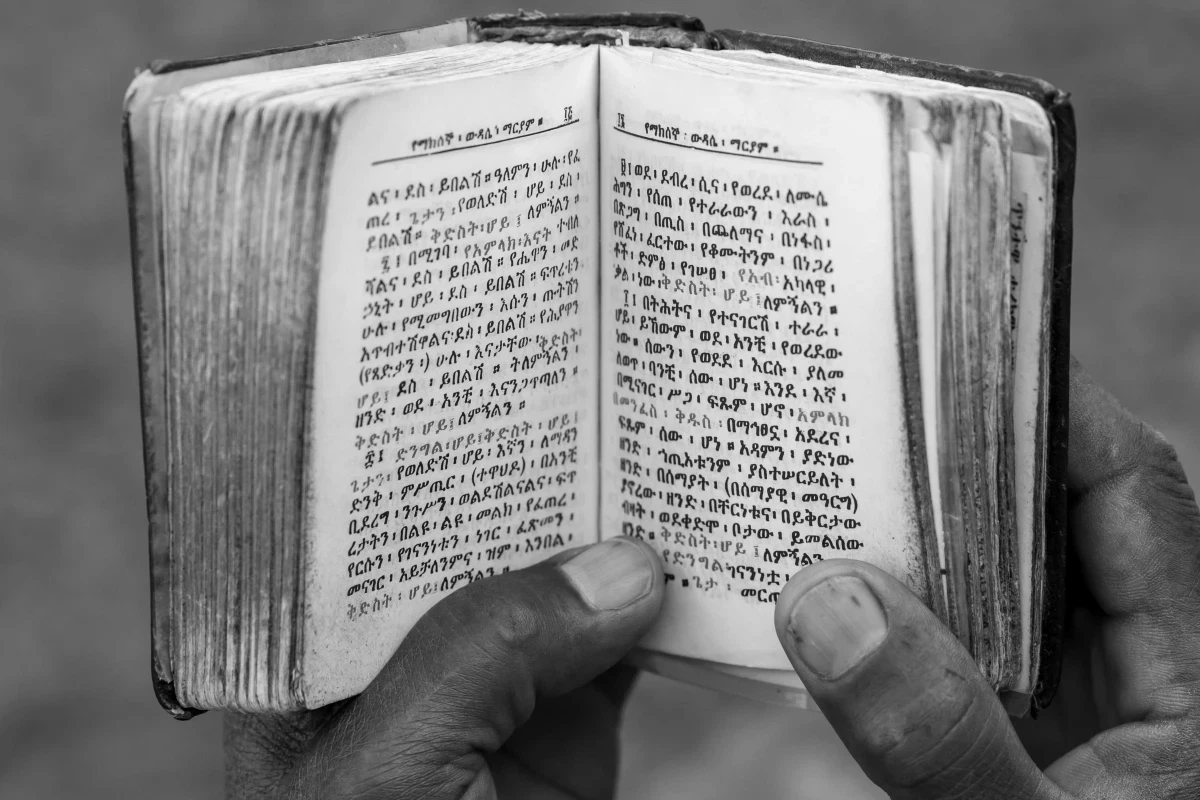 የማክሰኞ ፡ ውዳሴ ፡ ማርያም ። ፲፭
ልና ፡ ደስ ፡ ይበልሽ ። ዓለምን ፡ ሁሉ ፡ የፈ
ጠረ ፡ ጌታን ፡ የወለድሽ ፡ ሆይ ፡ ደስ ፡
ይበልሽ ። ቅድስት ፡ ሆይ ፤ ለምኝልን ።
፯ ፤ በሚገባ ፡ የአምላክ ፡ እናት ተብለ
ሻልና ፡ ደስ ፡ ይበልሽ ። የሔዋን ፡ መድ
ኃኒት ፡ ሆይ ፡ ደስ ፡ ይበልሽ ። ፍጥረቱን
ሁሉ ፡ የሚመግበውን ፡ እሱን ፡ ጡትሽን
አጥብተሽዋልና ፡ ደስ ፡ ይበልሽ ። የሕያዋን
(የጻድቃን ፡) ሁሉ ፡ እናታቸው ፡ ቅድስት
ሆይ ፤ ደስ ፡ ይበልሽ ። ትለምኝልን ፡
ዘንድ ፡ ወደ ፡ አንቺ ፡ እናንጋጥጣለን ።
ቅድስት ፡ ሆይ ፤ ለምኝልን ።
፰ ፤ ድንግል ፡ ሆይ ፤ ቅድስት ፡ ሆይ ፤
ጌታን ፡ የወለድሽ ፡ ሆይ ፡ እኛን ፡ ለማዳን
ድንቅ ፡ ምሥጢር ፡ (ተዋህዶ) ፡ በአንቺ
ቢደረግ ፡ ንጉሥን ፡ ወልደሽልናልና ፡ ፍጥ
ረታትን ፡ በልዩ ፡ ልዩ ፡ መልክ ፡ የፈጠረ ፡
የርሱን ፡ የገናንነቱን ፡ ነገር ፡ ፈጽመን ፡
መናገር ፡ አይቻለንምና ፡ ዝም ፡ እንበል ፡
ቅድስት ፡ ሆይ ፤ ለምኝልን ።
፲፮ የማክሰኞ ፡ ውዳሴ ፡ ማርያም ።
፱ ፤ ወደ ፡ ደብረ ፡ ሲና ፡ የወረደ ፡ ለሙሴ
ሕግን ፡ የሰጠ ፡ የተራራውን ፡ እራስ ፡
በጽጋግ ፡ በጢስ ፡ በጨለማና ፡ በነፋስ ፡
የሸፈነ ፡ ፈርተው ፡ የቆሙትንም ፡ በነጋሪ
ቶች ፡ ድምፅ ፡ የገሠፀ ፡ የአብ ፡ አካላዊ ፡
ቃል ፡ ነው ፡ ቅድስት ፡ ሆይ ፤ ለምኝልን ።
፲ ፤ በትሕትና ፡ የተናገርሽ ፡ ተራራ ፡
ሆይ ፡ ይኸውም ፡ ወደ ፡ አንቺ ፡ የወረደው
ነው ። ሰውን ፡ የወደደ ፡ እርሱ ፡ ያለመ
ለወጥ ፡ ባንቺ ፡ ሰው ፡ ሆነ ። እንደ ፡ እኛ ፡
በሚናገር ፡ ሥጋ ፡ ፍጹም ፡ ሆኖ ፡ አምላክ
በመንፈስ ፡ ቅዱስ ፡ በማኅፀኗ ፡ አደረና ፡
ፍጹም ፡ ሰው ፡ ሆነ ። አዳምን ፡ ያድነው
ዘንድ ፡ ኀጢአቱንም ፡ ያስተሠርይለት ፡
ዘንድ ፡ በሰማያት ፡ (በሰማያዊ ፡ መዓርግ)
ያኖረው ፡ ዘንድ ፡ በቸርነቱና ፡ በይቅርታው
ብዛት ፡ ወደቀድሞ ፡ ቦታው ፡ ይመልሰው
ዘንድ ፡ ቅድስት ፡ ሆይ ፤ ለምኝልን
የድንግል ፡ ገናንነቷ ፡
። ጌታ ፡ መርጦ